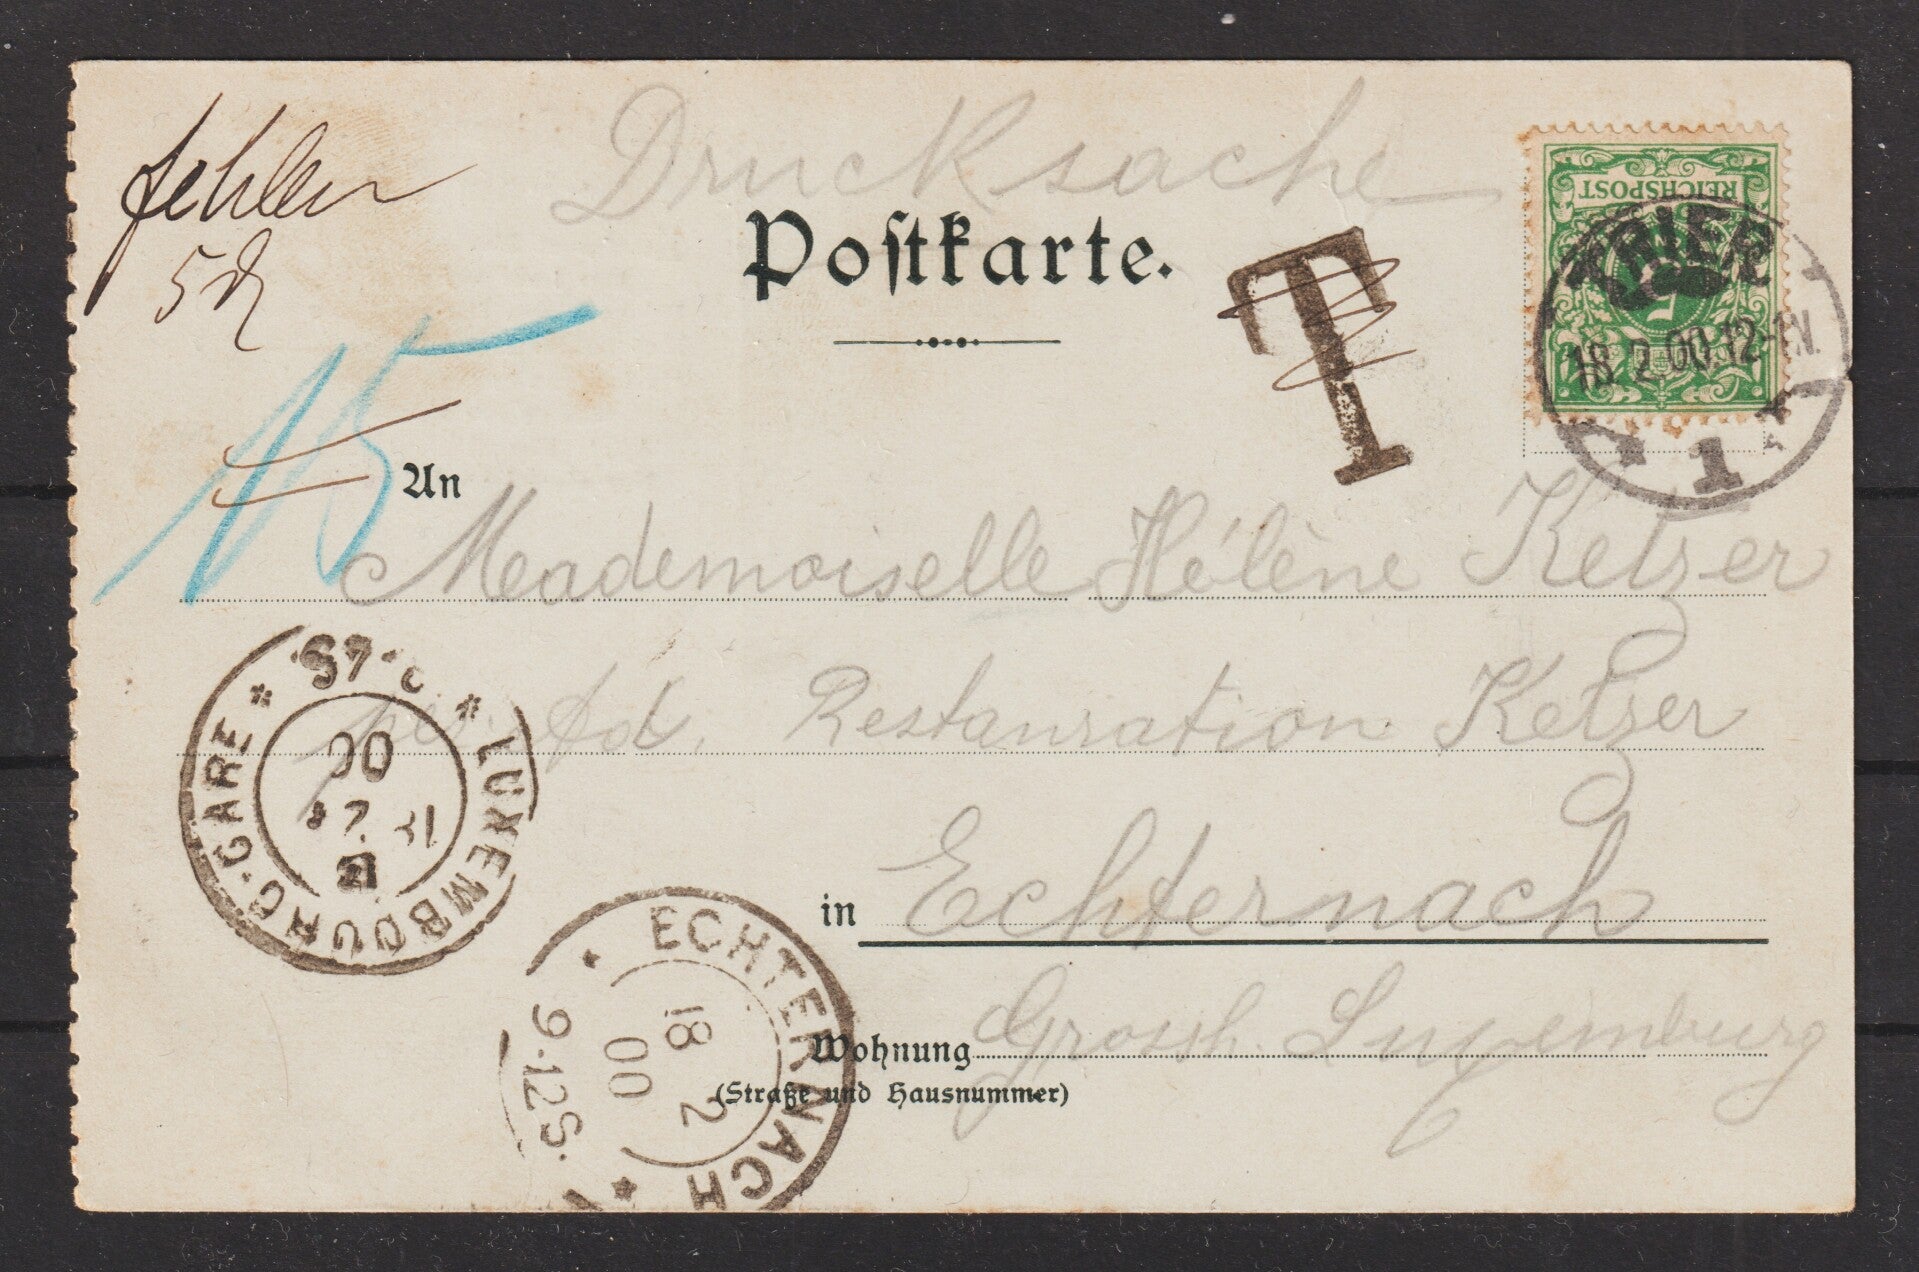 fehlen
5 ₰
Drucksache
Postkarte.
T
REICHSPOST
5
TRIER
18.2.00.12-1N.
1
15
An
Mademoiselle Hélène Ketzer
Restauration Ketzer
in Echternach
Grossh. Luxemburg
Wohnung
(Straße und Hausnummer)
LUXEMBOURG-GARE
00
ECHTERNACH
18 2
00
9-12S.